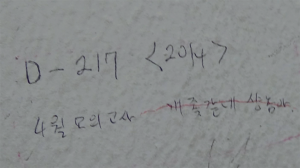 D-217 <2014>
4월 모의고사 개좆같네 씨발